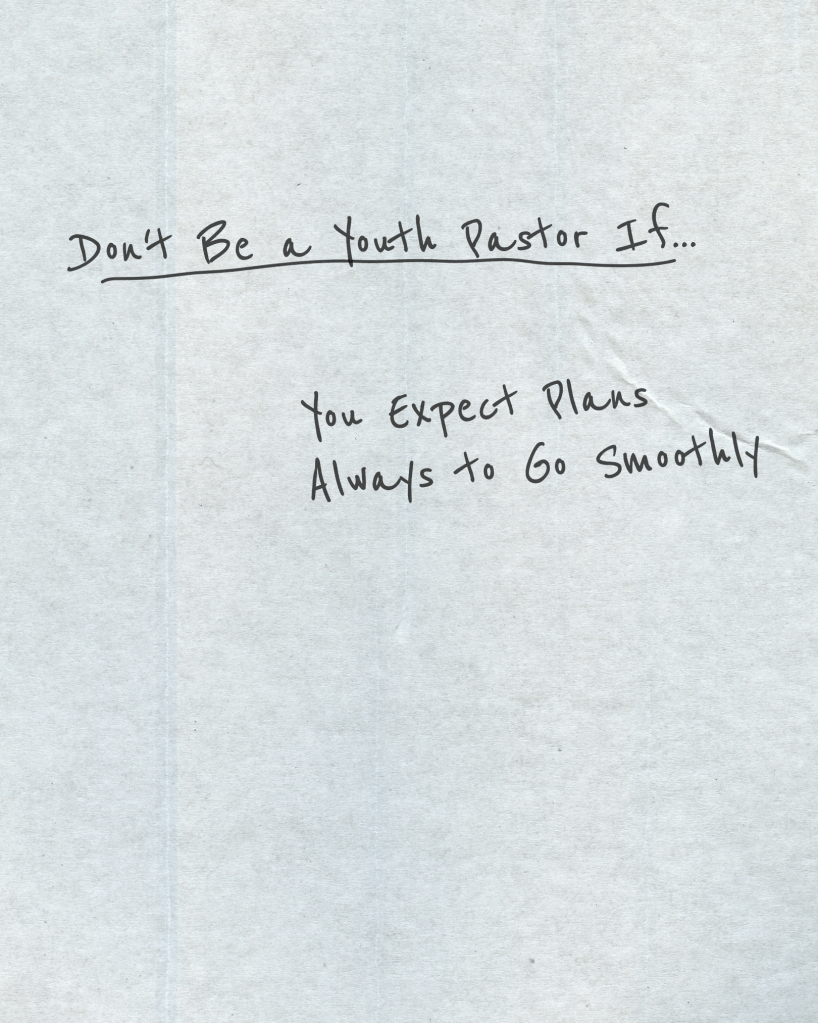 Don't Be a Youth Pastor If...
You Expect Plans
Always to Go Smoothly